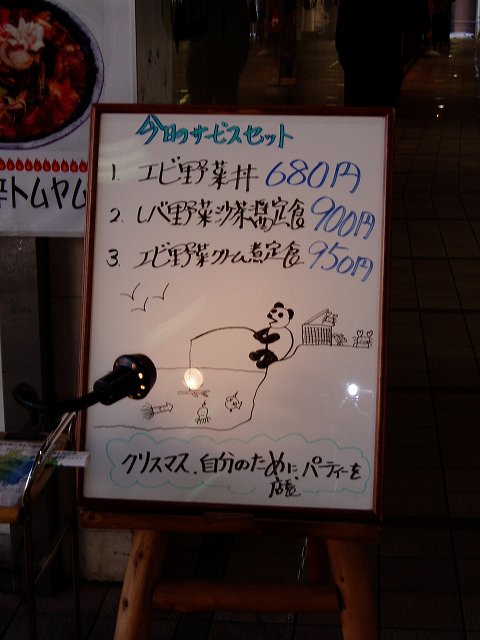 今日のサービスセット
1. エビ野菜丼 680円
2. レバ野菜沙茶醤定食 900円
3. エビ野菜クリーム煮定食 950円
クリスマス、自分のために、パーティーを
トムヤム